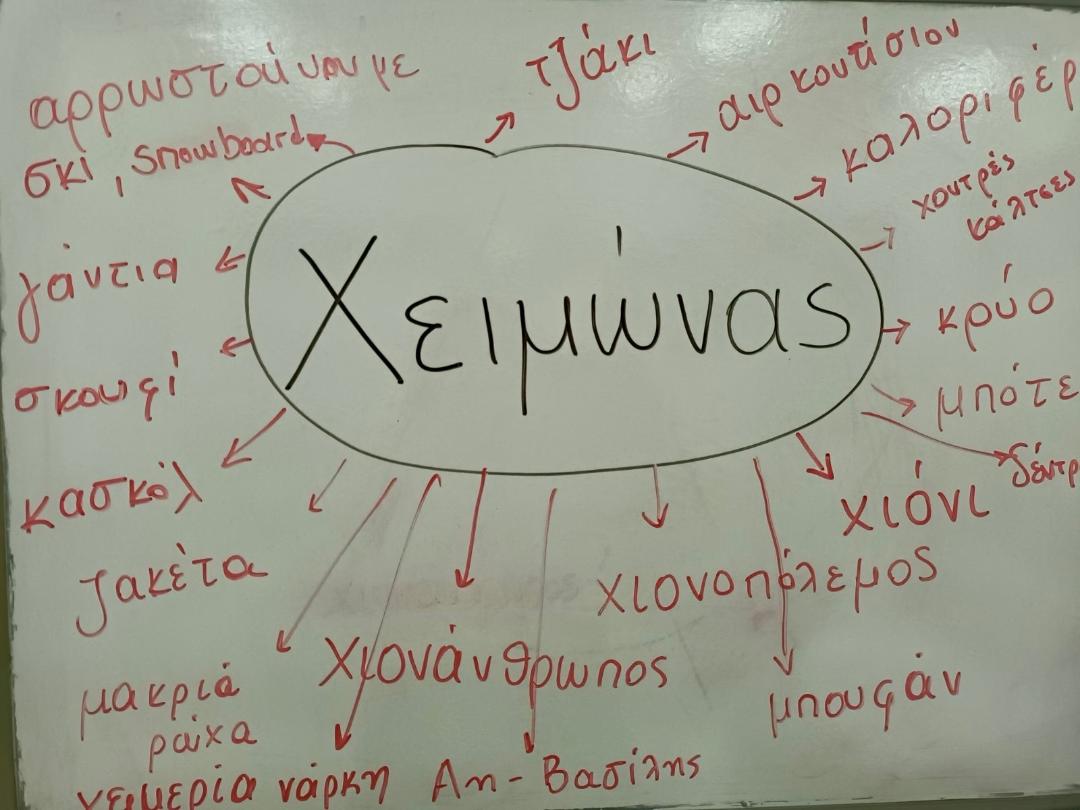 τζάκι
αιρκουτίσιον
αρρωσταίνουμε
καλοριφέρ
σκί, snowboard
χοντρές
κάλτσες
γάντια
Χειμώνας
κρύο
σκουφί
μπότε
δέντρ
κασκόλ
χιόνι
ζακέτα
χιονοπόλεμος
χιονάνθρωπος
μακριά
ρούχα
μπουφάν
χειμερία νάρκη
Αη-Βασίλης